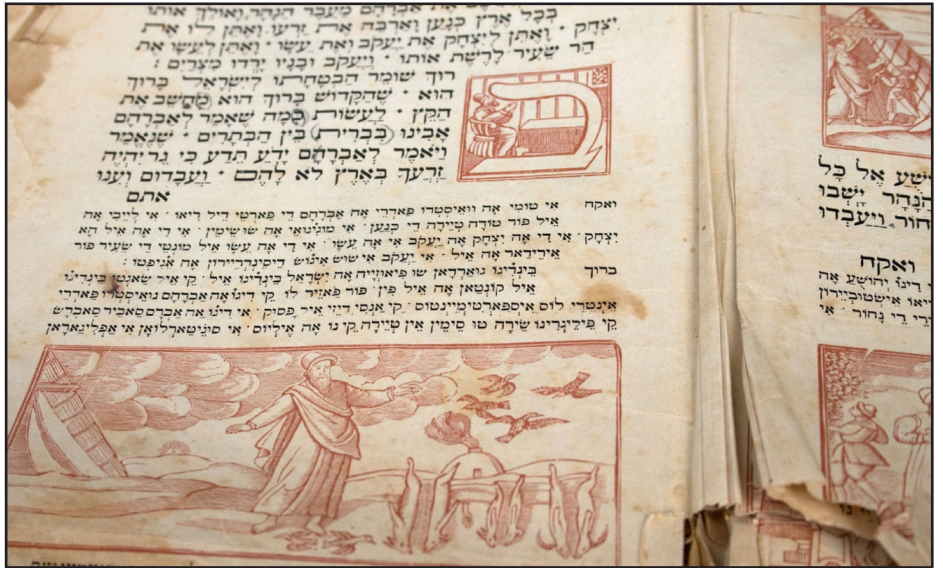 את אברהם מעבר הנהר ואולך אותו
בכל ארץ כנען וארבה את זרעו ואתן לו את
יצחק · ואתן ליצחק את יעקב ואת עשו · ואתן לעשו את
הר שעיר לרשת אותו · ויעקב ובניו ירדו מצרים :
ברוך שומר הבטחתו לישראל ברוך
הוא · שהקדוש ברוך הוא מחשב את
הקץ · לעשות כמה שאמר לאברהם
אבינו בברית בין הבתרים · שנאמר
ויאמר לאברהם ידע תדע כי גר יהיה
זרעך בארץ לא להם · ועבדום וענו
אתם
ואקח אי טומי אה וואיסטרו פאדרי אה אברהם די פארטי דיל ריאו · אי לייבי אה
איל פור טודה טיירה די כנען · אי מוגיגואי אה שו שימין · אי די אה איל הא
יצחק · אי די אה יצחק אה יעקב אי אה עשו · אי די אה עשו איל מונטי די שעיר פור
אירידאר אה איל · אי יעקב אי שוש איגוש דיסינדריירון אה אגיפטו :
ברוך בינדיגו גוארדאן שו פיאוזייה אה ישראל בינדיגו איל · קי איל שאנטו בינדיגו
איל קונטאן אה איל פין · פור פאזיר לו קי דיגו אה אברהם גואיסטרו פאדרי
אינטרי לוס איספארטימיינטוס · קי אנסי דיזי איל פסוק · אי דיגו אה אברם סאביר סאבראש
קי פיליגרינו שירה טו סימין אין טיירה קי נו אה אילייוס · אי
ישע אל כל
הנהר ישבו
נחור · ויעבדו
ואקח
דיגו יהושע אה
די נחור · אי